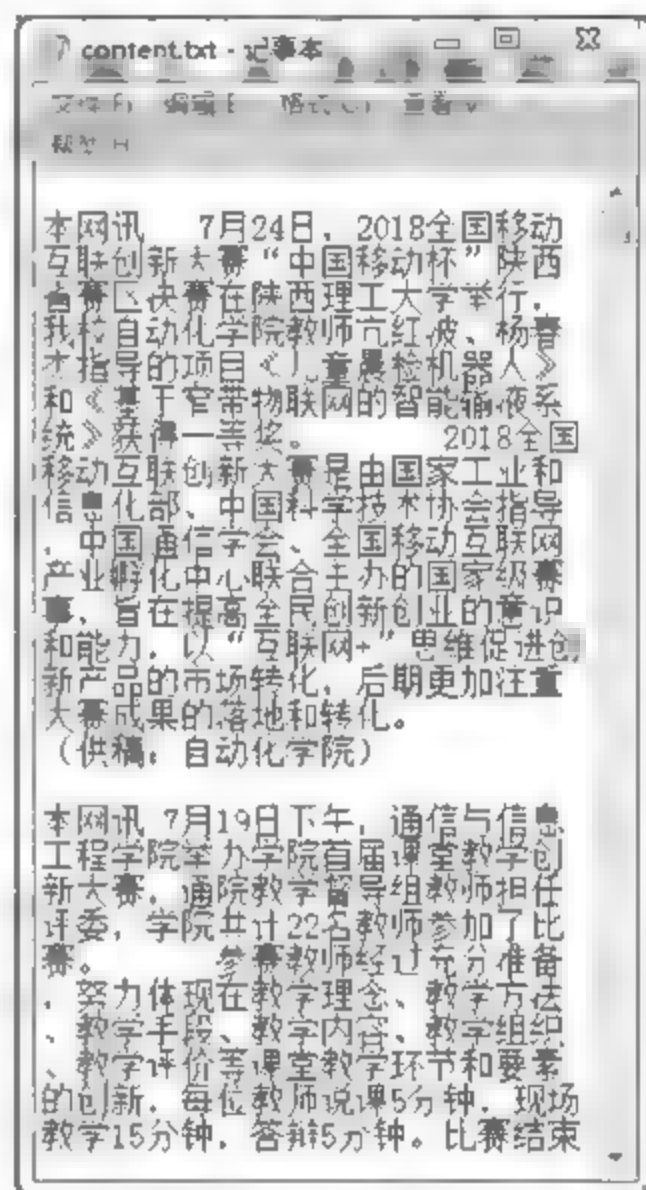 content.txt - 记事本
文件(F) 编辑(E) 格式(O) 查看(V)
帮助(H)
本网讯 7月24日，2018全国移动
互联创新大赛“中国移动杯”陕西
省赛区决赛在陕西理工大学举行，
我校自动化学院教师亢红波、杨春
杰指导的项目《儿童晨检机器人》
和《基于窄带物联网的智能输液系
统》获得一等奖。 2018全国
移动互联创新大赛是由国家工业和
信息化部、中国科学技术协会指导
，中国通信学会、全国移动互联网
产业孵化中心联合主办的国家级赛
事，旨在提高全民创新创业的意识
和能力，以“互联网+”思维促进创
新产品的市场转化，后期更加注重
大赛成果的落地和转化。
（供稿：自动化学院）
本网讯 7月19日下午，通信与信息
工程学院举办学院首届课堂教学创
新大赛，通院教学督导组教师担任
评委，学院共计22名教师参加了比
赛。 参赛教师经过充分准备
，努力体现在教学理念、教学方法
、教学手段、教学内容、教学组织
、教学评价等课堂教学环节和要素
的创新，每位教师说课5分钟，现场
教学15分钟，答辩5分钟。比赛结束